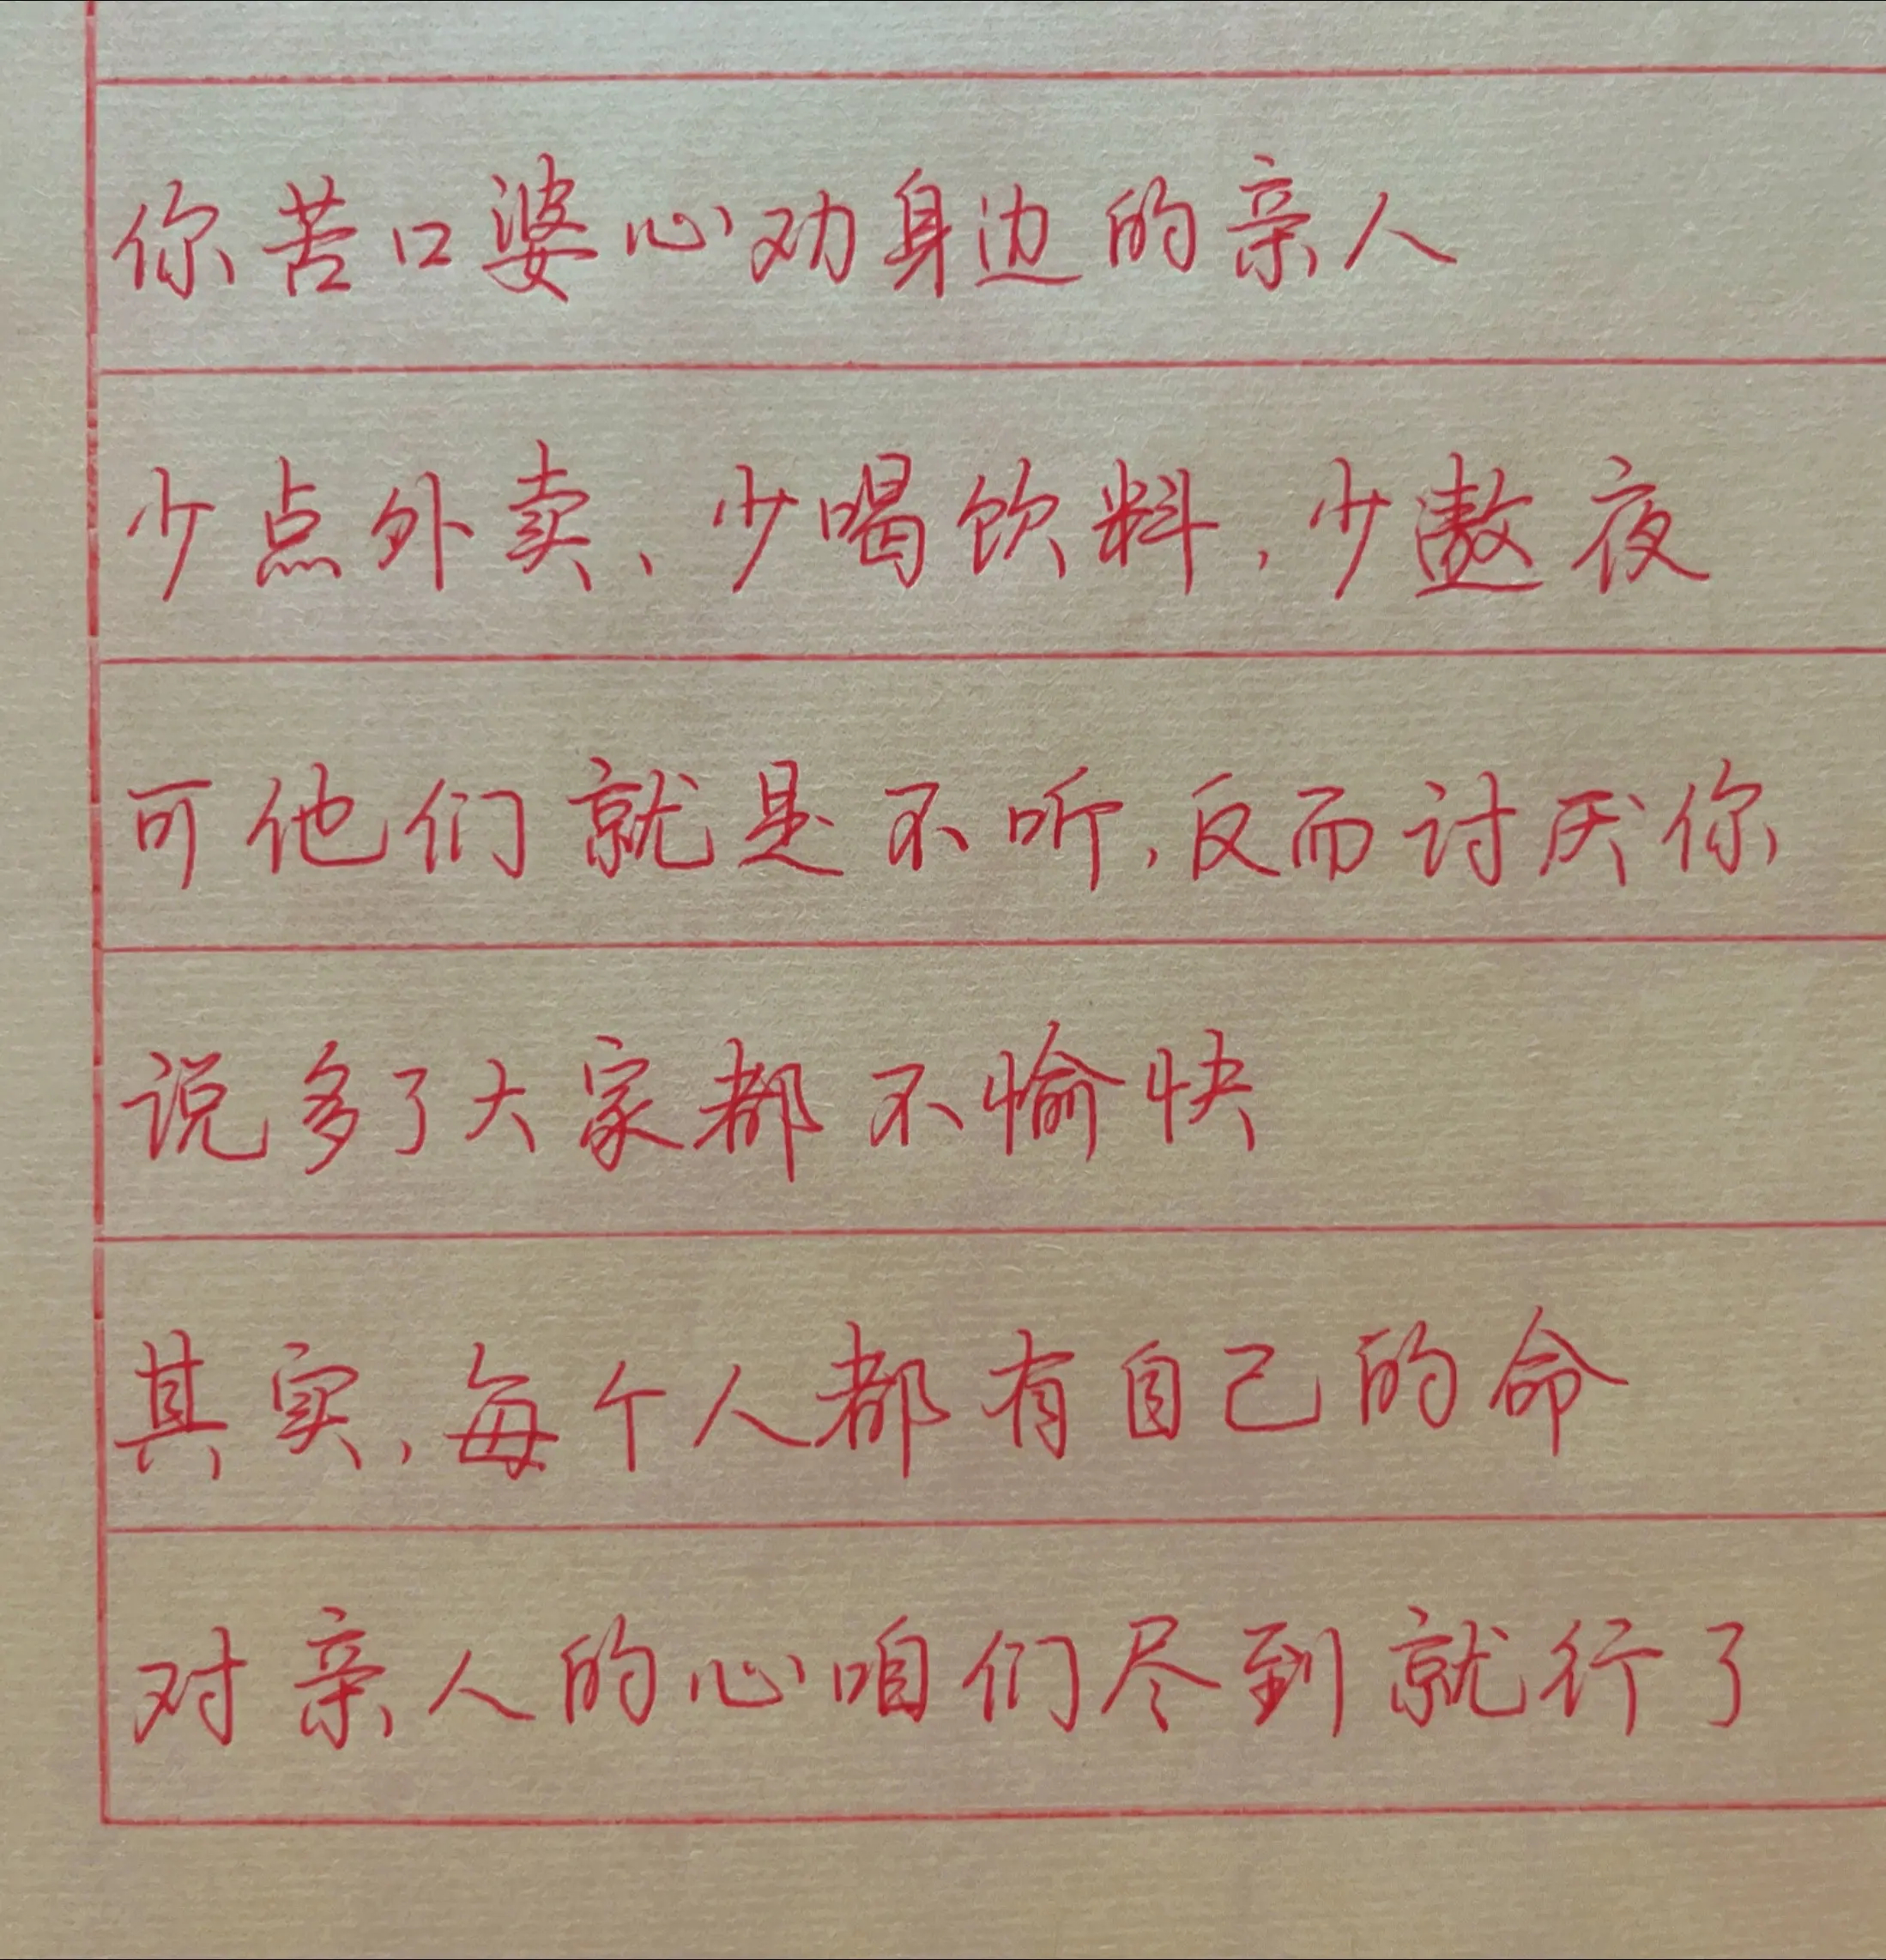 你苦口婆心劝身边的亲人
少点外卖、少喝饮料,少熬夜
可他们就是不听,反而讨厌你
说多了大家都不愉快
其实,每个人都有自己的命
对亲人的心咱们尽到就行了